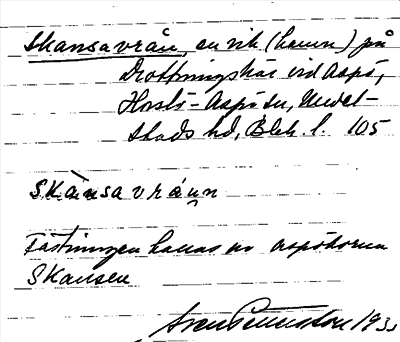 Skansavrån, en vik (hamn) på
Drottningskär vid Aspö,
Hasslö-Aspö sn, Medel-
stads hd, Blek. l. 105
Skànsavrån
Fästningen kallas av aspöborna
Skansen
Sven Petersson 193